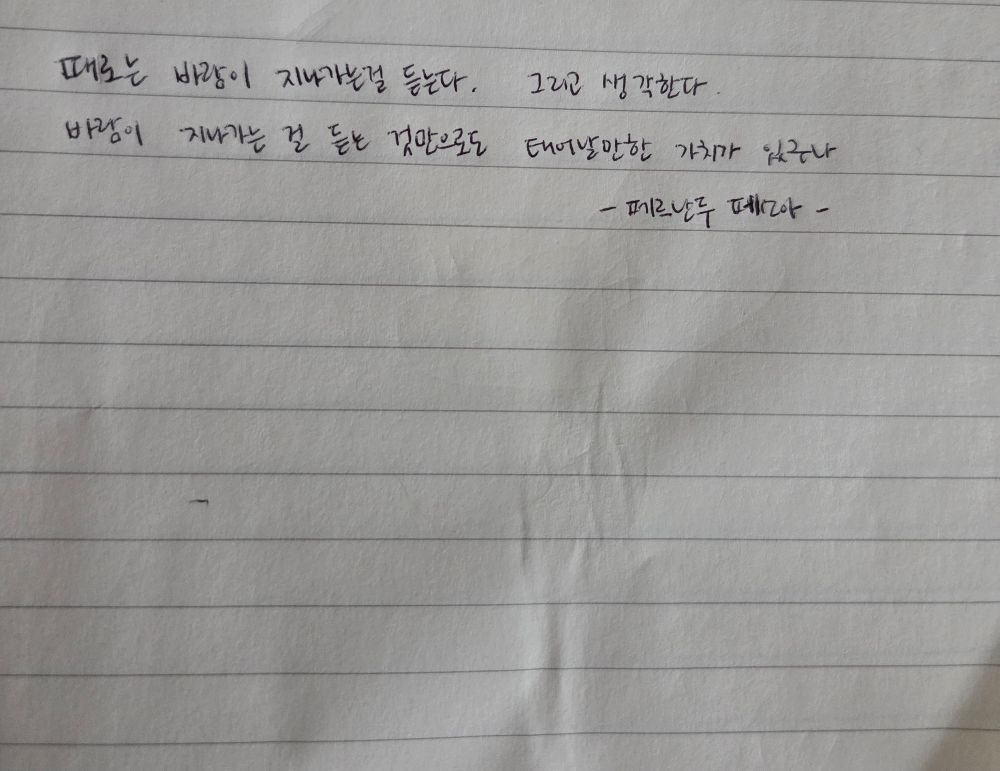 때로는 바람이 지나가는걸 듣는다. 그리고 생각한다.
바람이 지나가는 걸 듣는 것만으로도 태어날만한 가치가 있구나
- 페르난두 페소아 -